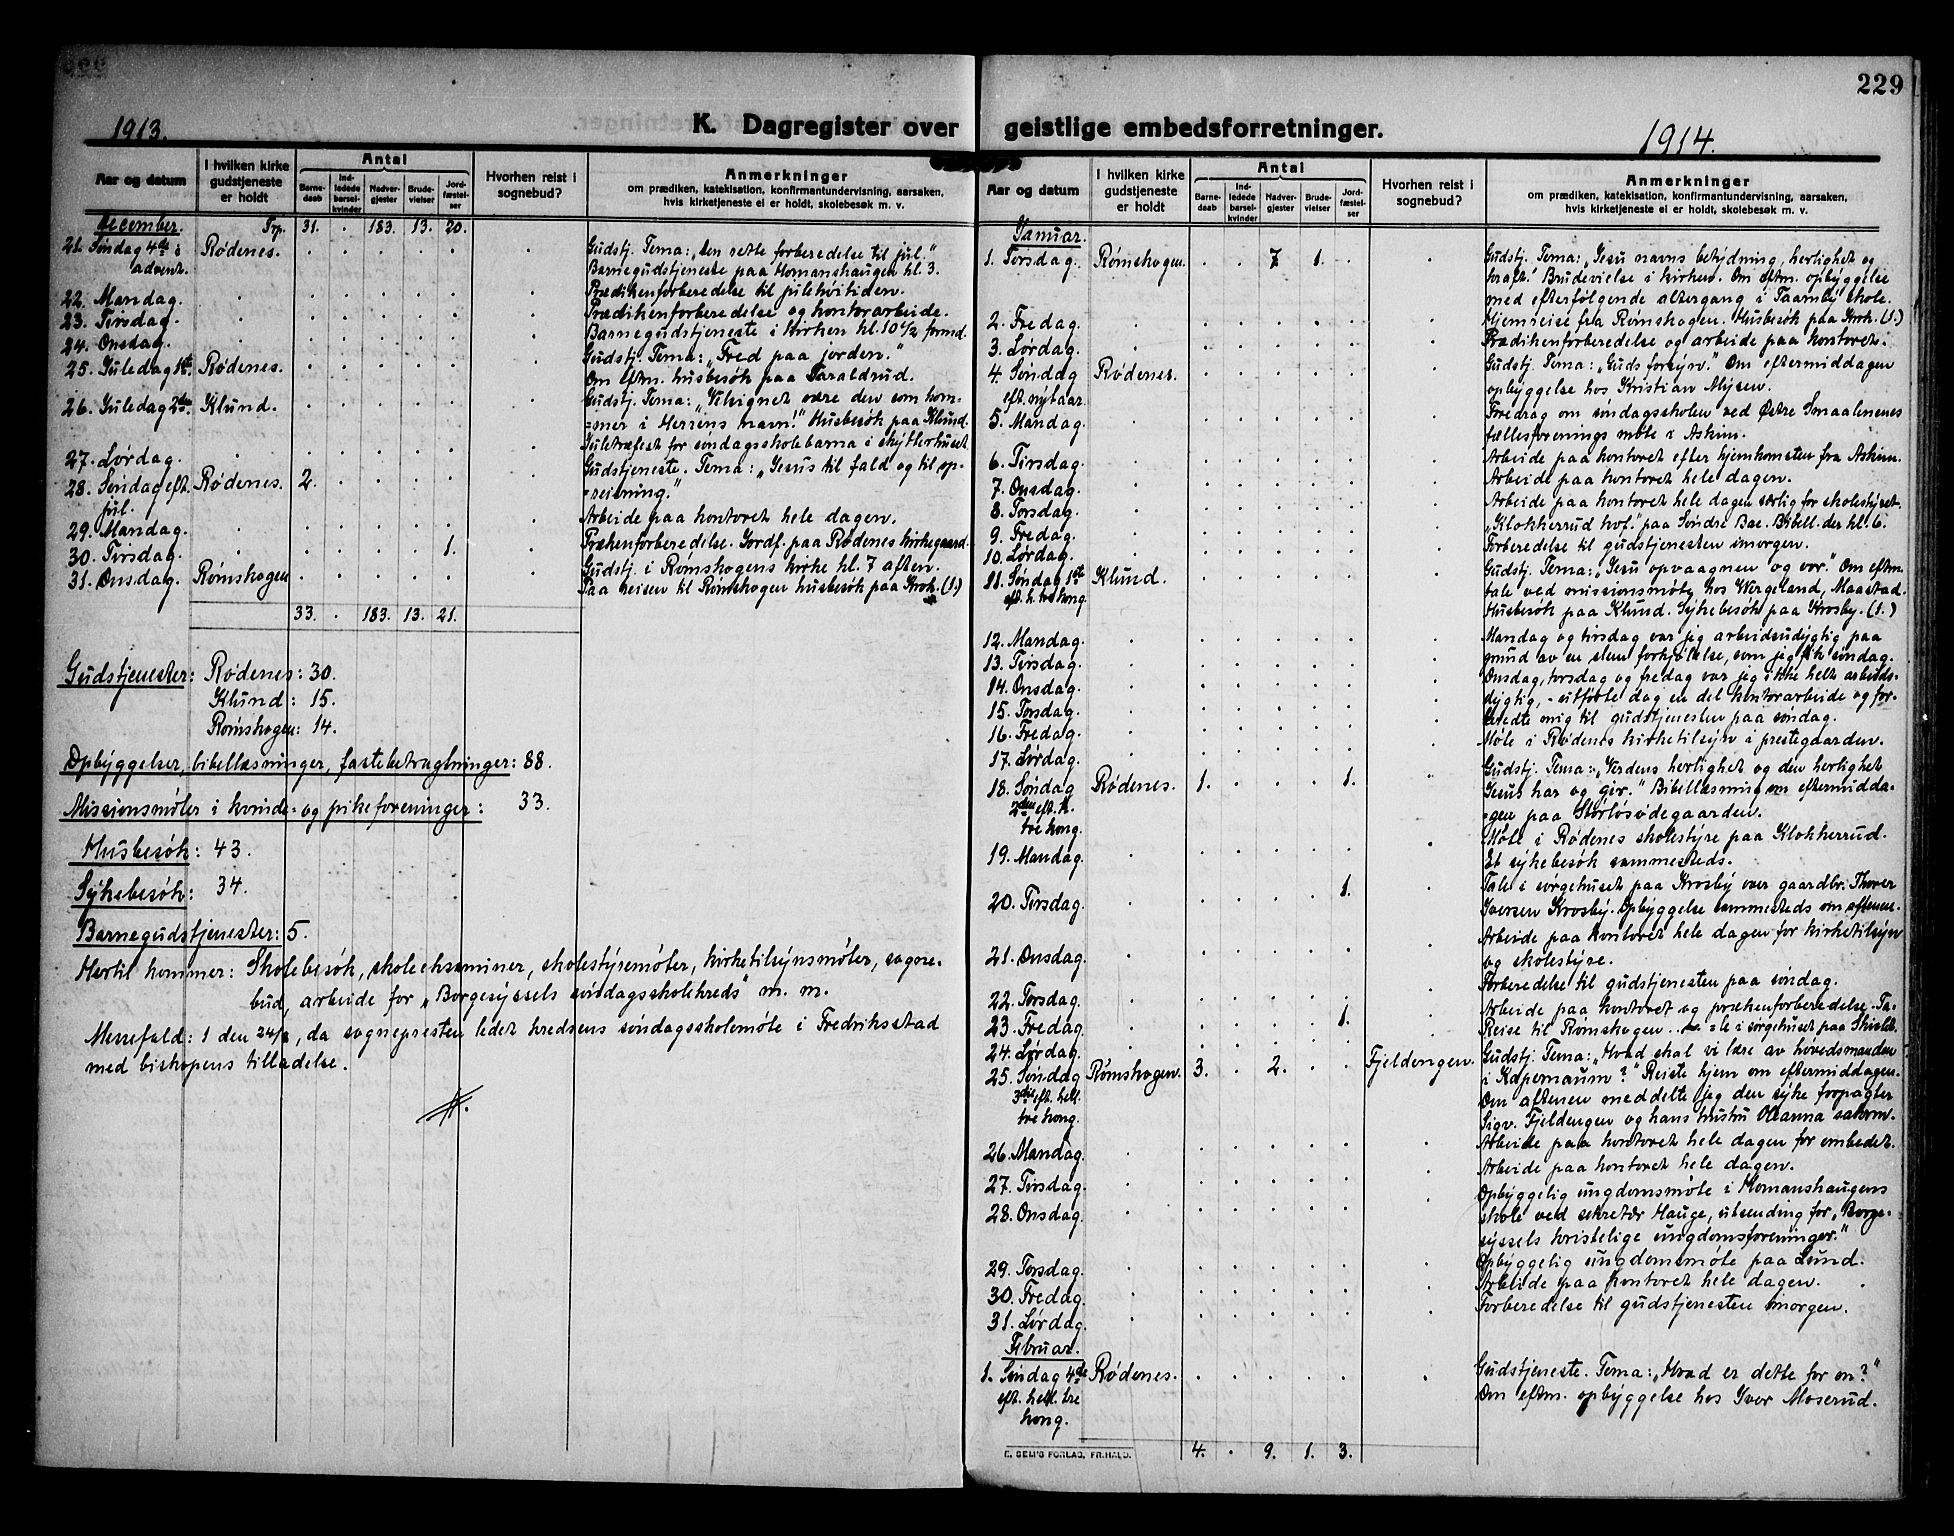 229
1913.
K. Dagregister over geistlige embedsforretninger.
1914.
Aar og datum
I hvilken kirke gudstjeneste er holdt
Antal
Barnedaab
Indledede barselkvinder
Nadvergjester
Brudevielser
Jordfæstelser
Hvorhen reist i sognebud?
Anmerkninger
om prædiken, katekisation, konfirmantundervisning, aarsaken,
hvis kirketjeneste ei er holdt, skolebesøk m. v.
December. Trp. 31. . 183. 13. 20.
21. Søndag 4de i Rødenes. Gudstj. Tema: „Den rette forberedelse til jul."
advent. Barnegudstjeneste paa Homanshaugen kl. 3.
22. Mandag. Prædikenforberedelse til julehøitiden.
23. Tirsdag. Prædikenforberedelse og kontorarbeide.
24. Onsdag. Barnegudstjeneste i kirken kl. 10 1/2 formd.
25. Juledag 1ste. Rødenes. Gudstj. Tema: „Fred paa jorden."
Om eftm. husbesøk paa Taraldrud.
26. Juledag 2den. Klund. Gudstj. Tema: „Velsignet være den som kom-
-mer i Herrens navn!" Husbesøk paa Klund.
27. Lørdag. Juletræfest for søndagsskolebarna i skytterhuset.
28. Søndag eft. Rødenes. 2. Gudstjeneste. Tema: „Jesus til fald og til op-
jul. -reisning."
29. Mandag. Arbeide paa kontoret hele dagen.
30. Tirsdag. 1. Prækenforberedelse. Jordf. paa Rødenes kirkegaard.
31. Onsdag. Rømskogen Gudstj. i Rømskogens kirke kl. 7 aften.
Paa reisen til Rømskogen husbesøk paa Krok. (1.)
33. . 183. 13. 21.
Gudstjenester: Rødenes: 30.
Klund: 15.
Rømskogen: 14.
Opbyggelser, bibellæsninger, fastebetragtninger: 88.
Missionsmøter i kvinde- og pikeforeninger: 33.
Husbesøk: 43.
Sykebesøk: 34.
Barnegudstjenester: 5.
Hertil kommer: Skolebesøk, skoleeksaminer, skolestyremøter, kirketilsynsmøter, sogne-
bud, arbeide for „Borgesyssels søndagsskolekreds" m. m.
Messefald: 1 den 24/8, da sognepresten ledet kredsens søndagsskolemøte i Fredriksstad
med biskopens tilladelse.
Aar og datum
I hvilken kirke gudstjeneste er holdt
Antal
Barnedaab
Indledede barselkvinder
Nadvergjester
Brudevielser
Jordfæstelser
Hvorhen reist i sognebud?
Anmerkninger
om prædiken, katekisation, konfirmantundervisning, aarsaken,
hvis kirketjeneste ei er holdt, skolebesøk m. v.
Januar.
1. Torsdag. Rømskogen. 7 1. Gudstj. Tema: „Jesu navns betydning, herlighet og
kraft." Brudevielse i kirken. Om eftm. opbyggelse
med efterfølgende altergang i Taarnby skole.
2. Fredag. Hjemreise fra Rømskogen. Husbesøk paa Krok. (1.)
3. Lørdag. Prædikenforberedelse og arbeide paa kontoret.
4. Søndag Rødenes. Gudstj. Tema: „Guds forsyn." Om eftermiddagen
eft. nytaar. opbyggelse hos Kristian Mysen.
5. Mandag. Foredrag om søndagsskolen ved Østre Smaalenenes
fællesforenings møte i Askim.
6. Tirsdag. Arbeide paa kontoret efter hjemkomsten fra Askim.
7. Onsdag. Arbeide paa kontoret hele dagen.
8. Torsdag. Arbeide paa kontoret hele dagen særlig for skolestyret.
9. Fredag. „Klokkerrud kvf." paa Søndre Bøe. Bibell. der kl. 6.
10. Lørdag. Forberedelse til gudstjenesten imorgen.
11. Søndag 1ste Klund. Gudstj. Tema: „Jesu opvaagnen og vor." Om eftm.
eft. h. tre kong. tale ved missionsmøte hos Wergeland, Maastad.
Husbesøk paa Klund. Sykebesøk paa Krosby. (1.)
12. Mandag. Mandag og tirsdag var jeg arbeidsudygtig paa
13. Tirsdag. grund av en slem forkjølelse, som jeg fik søndag.
14. Onsdag. Onsdag, torsdag og fredag var jeg ikke helt arbeids-
15. Torsdag. dygtig, - utførte dog en del kontorarbeide og for-
16. Fredag. beredte mig til gudstjenesten paa søndag.
17. Lørdag. Møte i Rødenes kirketilsyn i prestegaarden.
18. Søndag Rødenes. 1. 1. Gudstj. Tema: „Verdens herlighet og den herlighet
2den eft. h. Jesus har og gir." Bibellæsning om eftermidda-
tre kong. -gen paa Størløsødegaarden.
19. Mandag. Møte i Rødenes skolestyre paa Klokkerrud.
Et sykebesøk sammesteds.
20. Tirsdag. 1. Tale i sørgehuset paa Krosby over gaardbr. Thorer
Iversen Krosby. Opbyggelse sammesteds om aftenen.
21. Onsdag. Arbeide paa kontoret hele dagen for kirketilsyn
og skolestyre.
22. Torsdag. Forberedelse til gudstjenesten paa søndag.
23. Fredag. 1. Arbeide paa kontoret og prækenforberedelse. Ta-
24. Lørdag. Reise til Rømskogen. -le i sørgehuset paa
25. Søndag Rømskogen. 3. 2. Fjeldengen. Gudstj. Tema: „Hvad skal vi lære av høvedsmanden
3die eft. hell. i Kapernaum?" Reiste hjem om eftermiddagen.
tre kong. Om aftenen meddelte jeg den syke forpagter
Sigv. Fjeldengen og hans hustru Oleanna sakrm.
26. Mandag. Arbeide paa kontoret hele dagen for embedet.
27. Tirsdag. Arbeide paa kontoret hele dagen.
28. Onsdag. Opbyggelig ungdomsmøte i Homanshaugens
skole ved sekretær Hauge, utsending for „Borge-
syssels kristelige ungdomsforeninger."
29. Torsdag. Opbyggelig ungdomsmøte paa Lund.
30. Fredag. Arbeide paa kontoret hele dagen.
31. Lørdag. Forberedelse til gudstjenesten imorgen.
Februar.
1. Søndag 4de Rødenes. Gudstjeneste. Tema: „Hvad er dette for en?"
eft. hell. tre Om eftm. opbyggelse hos Iver Moserud.
kong.
4. . 9. 1. 3.
E. SEM'S FORLAG, FR.HALD.